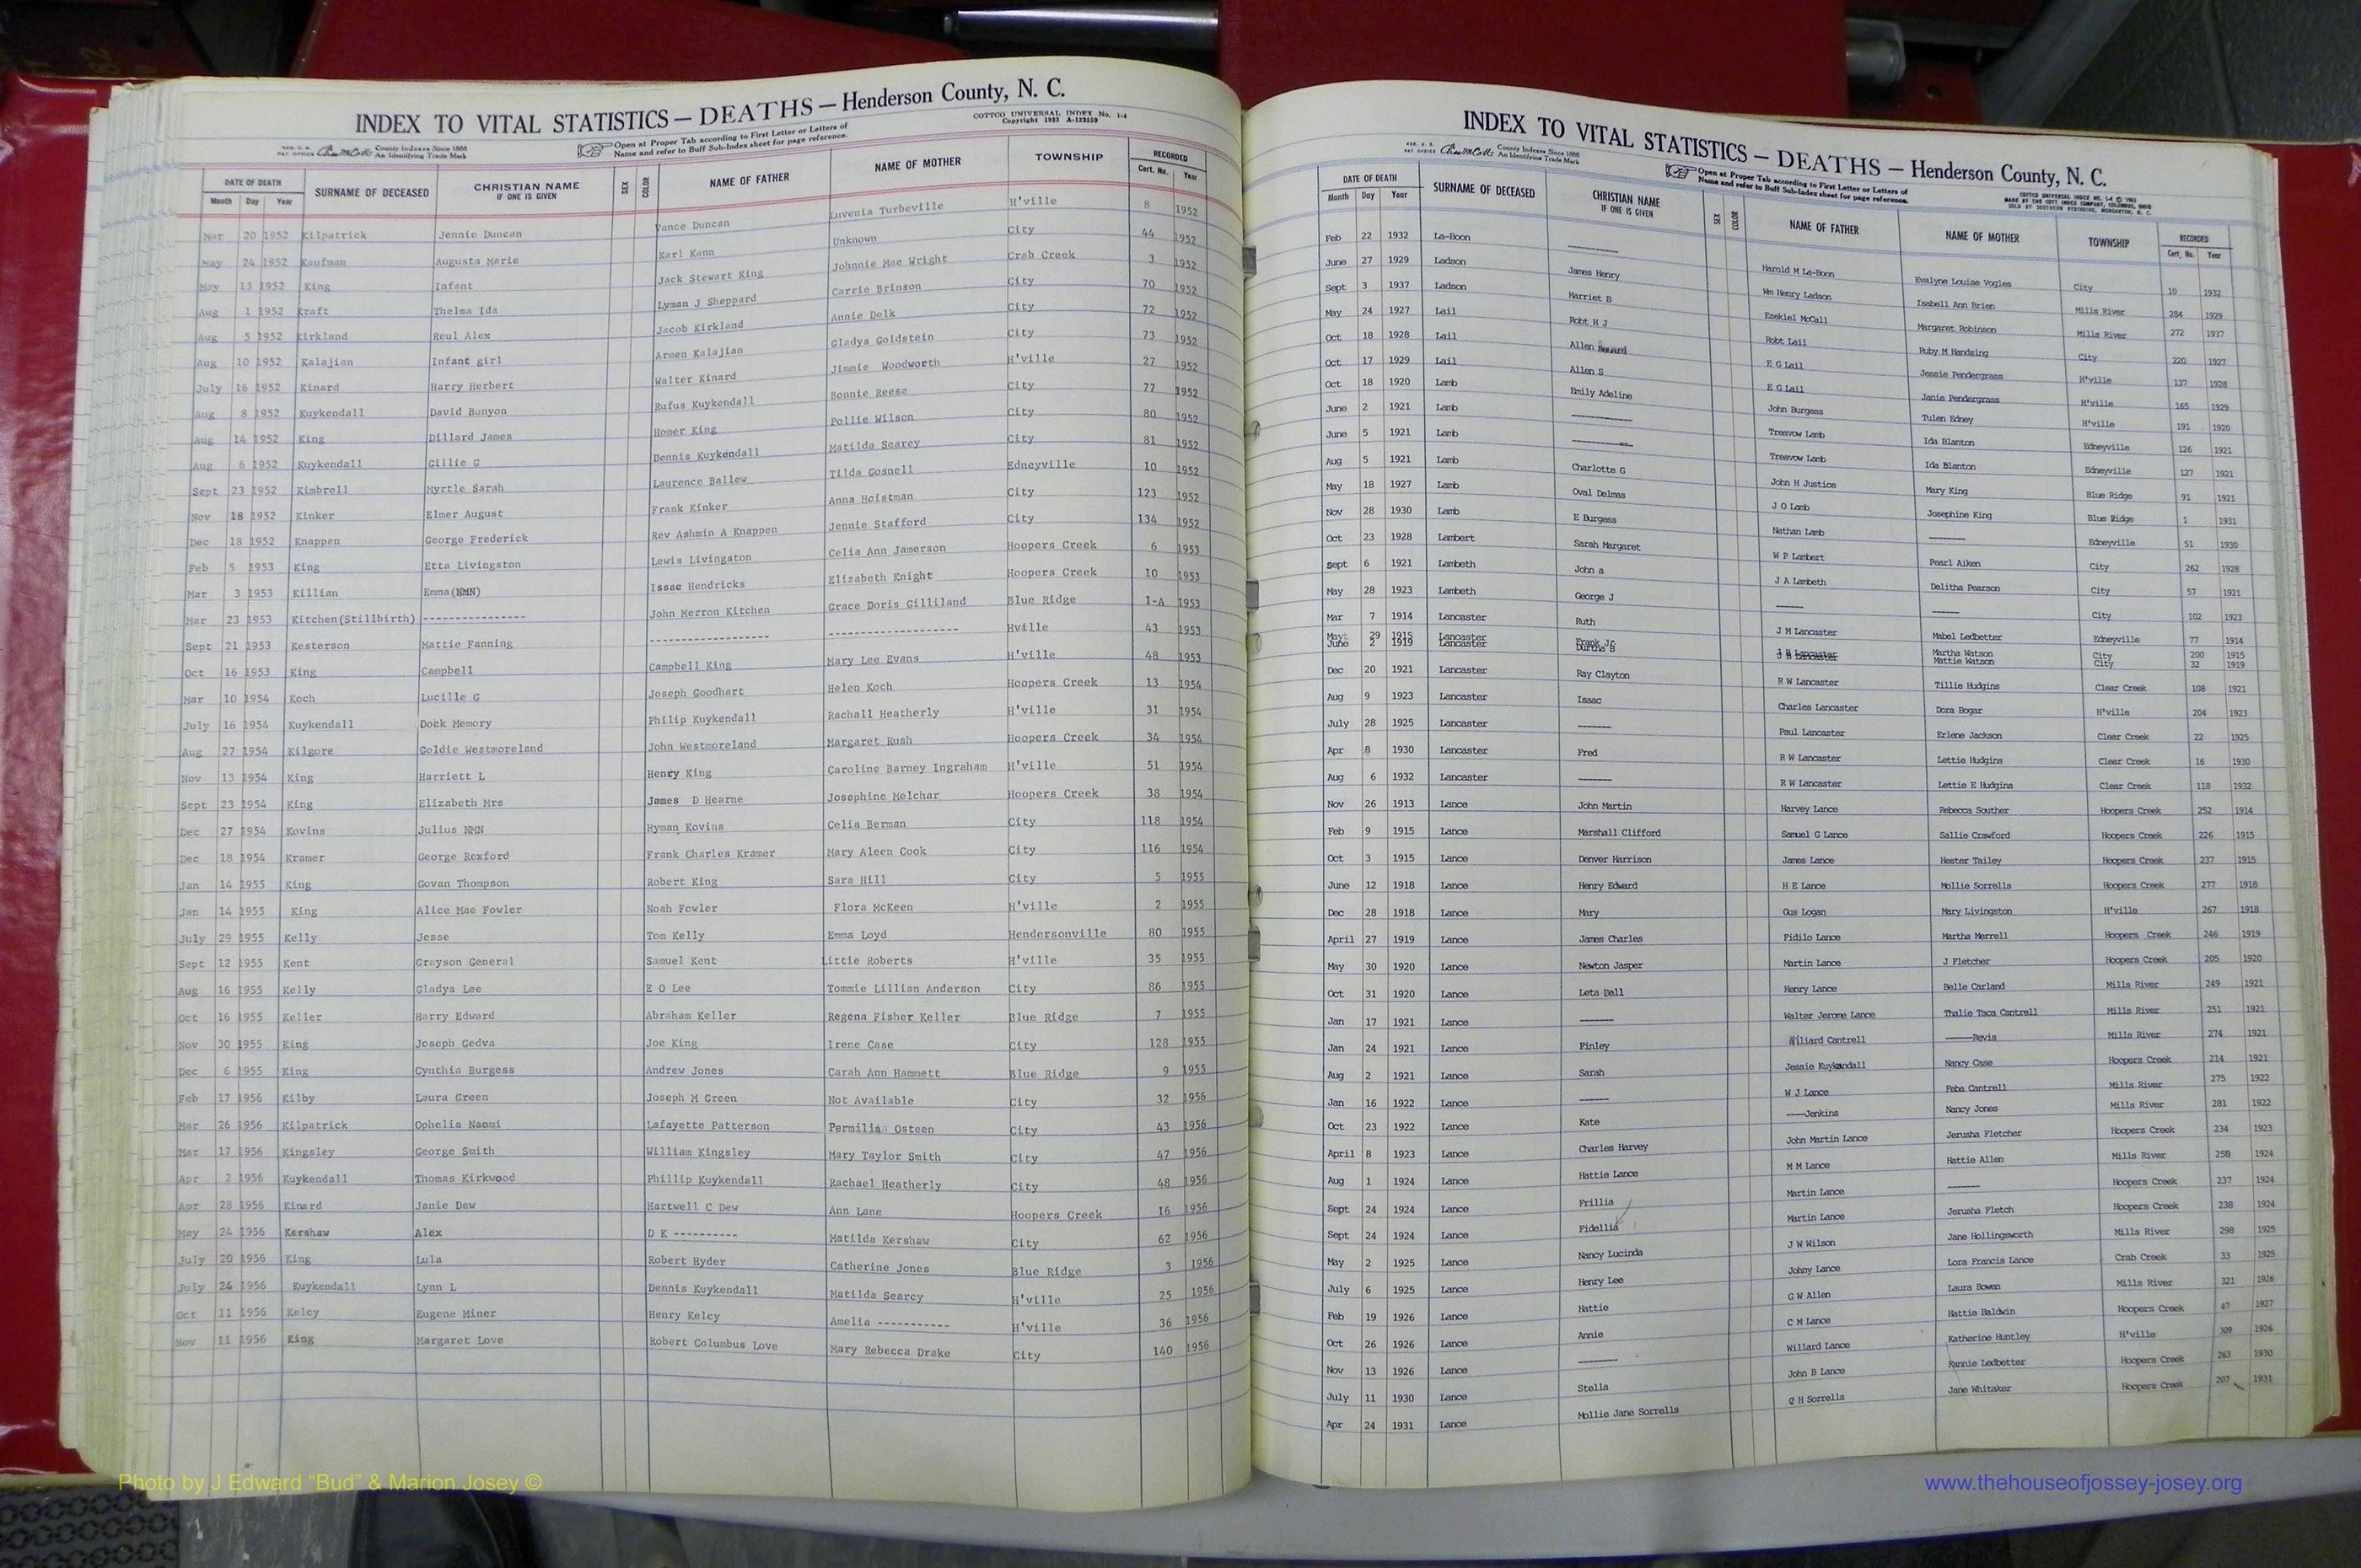 INDEX TO VITAL STATISTICS — DEATHS — Henderson County, N. C.
COTTCO UNIVERSAL INDEX No. 1-4
Copyright 1933 A-123559
County Indexes Since 1888
An Identifying Trade Mark
Open at Proper Tab according to First Letter or Letters of
Name and refer to Buff Sub-Index sheet for page reference.
DATE OF DEATH SURNAME OF DECEASED CHRISTIAN NAME IF ONE IS GIVEN SEX COLOR NAME OF FATHER NAME OF MOTHER TOWNSHIP RECORDED
Month Day Year Cert. No. Year
Mar 20 1952 Kilpatrick Jennie Duncan Vance Duncan Luvenia Turbeville H'ville 8 1952
May 24 1952 Kaufman Augusta Marie Karl Kann Unknown City 44 1952
May 13 1952 King Infant Jack Stewart King Johnnie Mae Wright Crab Creek 3 1952
Aug 1 1952 Kraft Thelma Ida Lyman J Sheppard Carrie Brinson City 70 1952
Aug 5 1952 Kirkland Reul Alex Jacob Kirkland Annie Delk City 72 1952
Aug 10 1952 Kalajian Infant girl Armen Kalajian Gladys Goldstein City 73 1952
July 16 1952 Kinard Harry Herbert Walter Kinard Jimmie Woodworth H'ville 27 1952
Aug 8 1952 Kuykendall David Bunyon Rufus Kuykendall Bonnie Reese City 77 1952
Aug 14 1952 King Dillard James Homer King Pollie Wilson City 80 1952
Aug 6 1952 Kuykendall Gillie G Dennis Kuykendall Matilda Searey City 81 1952
Sept 23 1952 Kimbrell Myrtle Sarah Laurence Ballew Tilda Gosnell Edneyville 10 1952
Nov 18 1952 Kinker Elmer August Frank Kinker Anna Hoistman City 123 1952
Dec 18 1952 Knappen George Frederick Rev Ashmin A Knappen Jennie Stafford City 134 1952
Feb 5 1953 King Etta Livingston Lewis Livingston Celia Ann Jamerson Hoopers Creek 6 1953
Mar 3 1953 Killian Emma(NMN) Issac Hendricks Elizabeth Knight Hoopers Creek 10 1953
Mar 23 1953 Kitchen(Stillbirth) --------------- John Merron Kitchen Grace Doris Gilliland Blue Ridge 1-A 1953
Sept 21 1953 Kesterson Mattie Fanning ------------------ ------------------- Hville 43 1953
Oct 16 1953 King Campbell Campbell King Mary Lee Evans H'ville 48 1953
Mar 10 1954 Koch Lucille G Joseph Goodhart Helen Koch Hoopers Creek 13 1954
July 16 1954 Kuykendall Dock Memory Philip Kuykendall Rachall Heatherly H'ville 31 1954
Aug 27 1954 Kilgore Goldie Westmoreland John Westmoreland Margaret Rush Hoopers Creek 34 1954
Nov 13 1954 King Harriett L Henry King Caroline Barney Ingraham H'ville 51 1954
Sept 23 1954 King Elizabeth Mrs James D Hearne Josephine Melchar Hoopers Creek 38 1954
Dec 27 1954 Kovins Julius NMN Hyman Kovins Celia Berman City 118 1954
Dec 18 1954 Kramer George Rexford Frank Charles Kramer Mary Aleen Cook City 116 1954
Jan 14 1955 King Govan Thompson Robert King Sara Hill City 5 1955
Jan 14 1955 King Alice Mae Fowler Noah Fowler Flora McKeen H'ville 2 1955
July 29 1955 Kelly Jesse Tom Kelly Emma Loyd Hendersonville 80 1955
Sept 12 1955 Kent Grayson General Samuel Kent Littie Roberts H'ville 35 1955
Aug 16 1955 Kelly Gladys Lee E O Lee Tommie Lillian Anderson City 86 1955
Oct 16 1955 Keller Harry Edward Abraham Keller Regena Fisher Keller Blue Ridge 7 1955
Nov 30 1955 King Joseph Gedva Joe King Irene Case City 128 1955
Dec 6 1955 King Cynthia Burgess Andrew Jones Carah Ann Hammett Blue Ridge 9 1955
Feb 17 1956 Kilby Laura Green Joseph M Green Not Available City 32 1956
Mar 26 1956 Kilpatrick Ophelia Naomi Lafayette Patterson Permilia Osteen City 43 1956
Mar 17 1956 Kingsley George Smith William Kingsley Mary Taylor Smith City 47 1956
Apr 2 1956 Kuykendall Thomas Kirkwood Phillip Kuykendall Rachael Heatherly City 48 1956
Apr 28 1956 Kinard Janie Dew Hartwell C Dew Ann Lane Hoopers Creek 16 1956
May 24 1956 Kershaw Alex D K ---------- Matilda Kershaw City 62 1956
July 20 1956 King Lula Robert Hyder Catherine Jones Blue Ridge 3 1956
July 24 1956 Kuykendall Lynn L Dennis Kuykendall Matilda Searcy H'ville 25 1956
Oct 11 1956 Kelcy Eugene Miner Henry Kelcy Amelia ----------- H'ville 36 1956
Nov 11 1956 King Margaret Love Robert Columbus Love Mary Rebecca Drake City 140 1956
INDEX TO VITAL STATISTICS — DEATHS — Henderson County, N. C.
County Indexes Since 1888
An Identifying Trade Mark
Open at Proper Tab according to First Letter or Letters of
Name and refer to Buff Sub-Index sheet for page reference.
DATE OF DEATH SURNAME OF DECEASED CHRISTIAN NAME IF ONE IS GIVEN SEX COLOR NAME OF FATHER NAME OF MOTHER TOWNSHIP RECORDED
Month Day Year Cert. No. Year
Feb 22 1932 La-Boon -------- Harold M La-Boon Evalyne Louise Vogles City 10 1932
June 27 1929 Ladson James Henry Wm Henry Ladson Isabell Ann Brien Mills River 284 1929
Sept 3 1937 Ladson Harriet B Ezekiel McCall Margaret Robinson Mills River 272 1937
May 24 1927 Lail Robt H J Robt Lail Ruby M City 220 1927
Oct 18 1928 Lail Allen E G Lail Jessie Pendergrass H'ville 137 1928
Oct 17 1929 Lail Allen S E G Lail Janie Pendergrass H'ville 165 1929
Oct 18 1920 Lamb Emily Adeline John Burgess Tulen Edney H'ville 191 1920
June 2 1921 Lamb -------- Treavow Lamb Ida Blanton Edneyville 126 1921
June 5 1921 Lamb -------- Treavow Lamb Ida Blanton Edneyville 127 1921
Aug 5 1921 Lamb Charlotte G John H Justice Mary King Blue Ridge 91 1921
May 18 1927 Lamb Oval Delmas J O Lamb Josephine King Blue Ridge 1 1931
Nov 28 1930 Lamb E Burgess Nathan Lamb ------- Edneyville 51 1930
Oct 23 1928 Lambert Sarah Margaret W P Lambert Pearl Aiken City 262 1928
Sept 6 1921 Lambeth John a J A Lambeth Delitha Pearson City 57 1921
May 28 1923 Lambeth George J ------ ------ City 102 1923
Mar 7 1914 Lancaster Ruth J M Lancaster Mabel Ledbetter Edneyville 77 1914
May 29 1915 Lancaster Frank Jr J B Lancaster Martha Watson City 200 1915
June 2 1919 Lancaster Durtha B Mattie Watson City 32 1919
Dec 20 1921 Lancaster Ray Clayton R W Lancaster Tillie Hudgins Clear Creek 108 1921
Aug 9 1923 Lancaster Isaac Charles Lancaster Dora Bogar H'ville 204 1923
July 28 1925 Lancaster ------- Paul Lancaster Erlene Jackson Clear Creek 22 1925
Apr 8 1930 Lancaster Fred R W Lancaster Lettie Hudgins Clear Creek 16 1930
Aug 6 1932 Lancaster ------- R W Lancaster Lettie E Hudgins Clear Creek 118 1932
Nov 26 1913 Lance John Martin Harvey Lance Rebecca Souther Hoopers Creek 252 1914
Feb 9 1915 Lance Marshall Clifford Samuel G Lance Sallie Crawford Hoopers Creek 226 1915
Oct 3 1915 Lance Denver Harrison James Lance Hester Tailey Hoopers Creek 237 1915
June 12 1918 Lance Henry Edward H E Lance Mollie Sorrells Hoopers Creek 277 1918
Dec 28 1918 Lance Mary Gus Logan Mary Livingston H'ville 267 1918
April 27 1919 Lance James Charles Fidilo Lance Martha Merrell Hoopers Creek 246 1919
May 30 1920 Lance Newton Jasper Martin Lance J Fletcher Hoopers Creek 205 1920
Oct 31 1920 Lance Leta Dell Henry Lance Belle Carland Mills River 249 1921
Jan 17 1921 Lance ------- Walter Jerome Lance Thalie Taca Cantrell Mills River 251 1921
Jan 24 1921 Lance Finley Williard Cantrell -----Revis Mills River 274 1921
Aug 2 1921 Lance Sarah Jessie Kuykendall Nancy Case Hoopers Creek 214 1921
Jan 16 1922 Lance ------ W J Lance Feba Cantrell Mills River 275 1922
Oct 23 1922 Lance Kate ----Jenkins Nancy Jones Mills River 281 1922
April 8 1923 Lance Charles Harvey John Martin Lance Jerusha Fletcher Hoopers Creek 234 1923
Aug 1 1924 Lance Hattie Lance M M Lance Hattie Allen Mills River 250 1924
Sept 24 1924 Lance Frillia Martin Lance ------- Hoopers Creek 237 1924
Sept 24 1924 Lance Fidellia Martin Lance Jerusha Fletch Hoopers Creek 238 1924
May 2 1925 Lance Nancy Lucinda J W Wilson Jane Hollingsworth Mills River 298 1925
July 6 1925 Lance Henry Lee Johny Lance Lora Francis Lance Crab Creek 33 1925
Feb 19 1926 Lance Hattie G W Allen Laura Bowen Mills River 321 1926
Oct 26 1926 Lance Annie C M Lance Hattie Baldwin Hoopers Creek 47 1927
Nov 13 1926 Lance -------- Willard Lance Katherine Huntley H'ville 309 1926
July 11 1930 Lance Stella John B Lance Fannie Ledbetter Hoopers Creek 263 1930
Apr 24 1931 Lance Mollie Jane Sorrells C H Sorrells Jane Whitaker Hoopers Creek 207 1931
Photo by J Edward “Bud” & Marion Josey ©
www.thehouseofjossey-josey.org